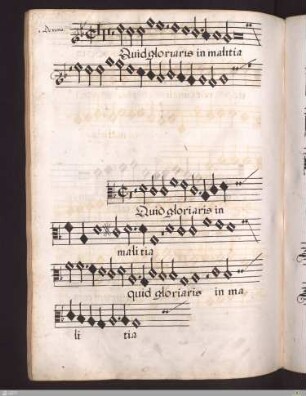 Quid gloriaris in malitia
Quid gloriaris in
mali tia
quid gloriaris in ma,
li tia